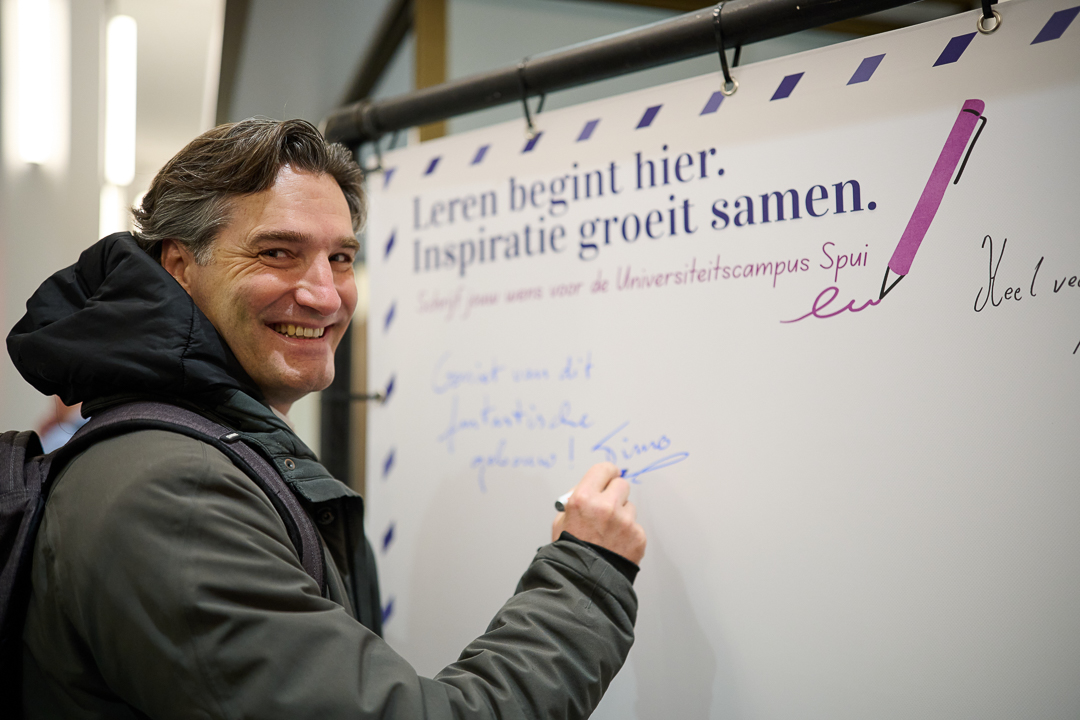 Leren begint hier.
Inspiratie groeit samen.
Schrijf jouw wens voor de Universiteitscampus Spui
Heel vee
Geniet van dit
fantastische
gebouw! Timo